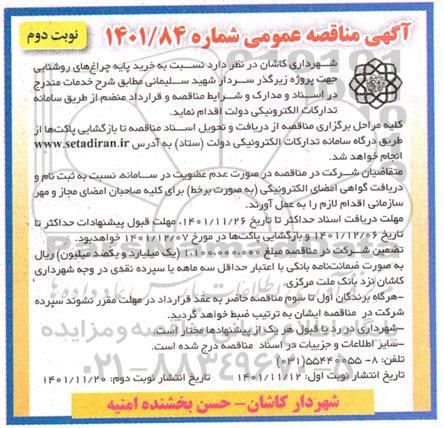 آگهی مناقصه عمومی شماره ۱۴۰۱/۸۴
نوبت دوم
شهرداری کاشان در نظر دارد نسبت به خرید پایه چراغ‌های روشنایی
جهت پروژه زیرگذر سردار شهید سلیمانی مطابق شرح خدمات مندرج
در اسناد و مدارک و شرایط مناقصه و قرارداد منضم از طریق سامانه
تدارکات الکترونیکی دولت اقدام نماید.
کلیه مراحل برگزاری مناقصه از دریافت و تحویل اسناد مناقصه تا بازگشایی پاکت‌ها از
طریق درگاه سامانه تدارکات الکترونیکی دولت (ستاد) به آدرس www.setadiran.ir
انجام خواهد شد.
متقاضیان شرکت در مناقصه در صورت عدم عضویت در سامانه، نسبت به ثبت نام و
دریافت گواهی امضای الکترونیکی (به صورت برخط) برای کلیه صاحبان امضای مجاز و مهر
سازمانی اقدام لازم را به عمل آورند.
مهلت دریافت اسناد حداکثر تا تاریخ ۱۴۰۱/۱۱/۲۶، مهلت قبول پیشنهادات حداکثر تا
تاریخ ۱۴۰۱/۱۲/۰۶ و بازگشایی پاکت‌ها در مورخ ۱۴۰۱/۱۲/۰۷ خواهد بود.
تضمین شرکت در مناقصه مبلغ ۱.۱۰۰.۰۰۰.۰۰۰ (یک میلیارد و یکصد میلیون) ریال
به صورت ضمانت‌نامه بانکی با اعتبار حداقل سه ماهه یا سپرده نقدی در وجه شهرداری
کاشان نزد بانک ملت مرکزی.
-هرگاه برندگان اول تا سوم مناقصه حاضر به عقد قرارداد در مهلت مقرر نشوند سپرده
شرکت در مناقصه ایشان به ترتیب ضبط خواهد گردید.
-شهرداری در رد یا قبول هر یک از پیشنهادها مختار است.
-سایر اطلاعات و جزییات در اسناد مناقصه درج شده است.
تلفن: ۸- ۵۵۴۴۰۰۵۵(۰۳۱)
تاریخ انتشار نوبت اول: ۱۴۰۱/۱۱/۱۲ تاریخ انتشار نوبت دوم: ۱۴۰۱/۱۱/۲۰
شهردار کاشان- حسن بخشنده امنیه